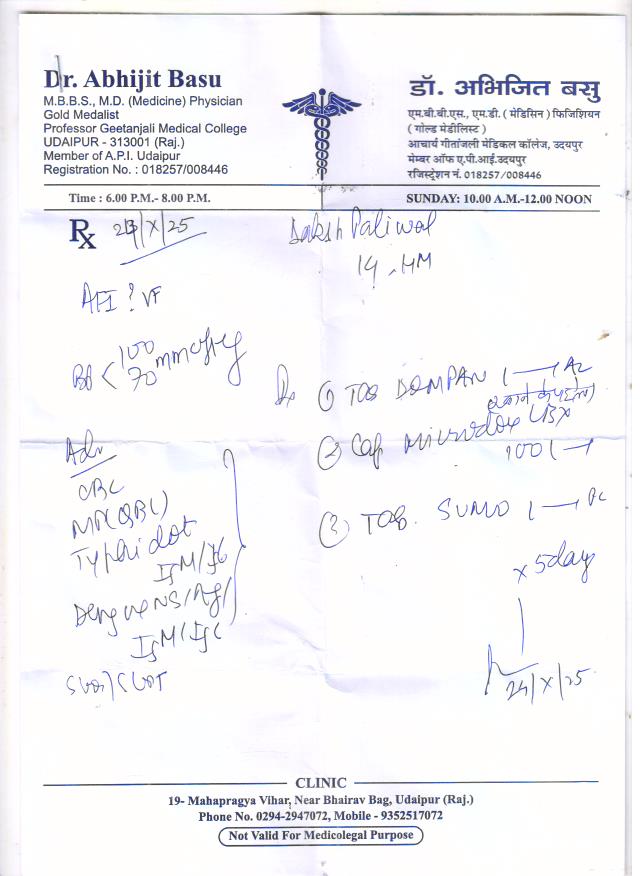 Dr. Abhijit Basu
M.B.B.S., M.D. (Medicine) Physician
Gold Medalist
Professor Geetanjali Medical College
UDAIPUR - 313001 (Raj.)
Member of A.P.I. Udaipur
Registration No. : 018257/008446
डॉ. अभिजित बसु
एम.बी.बी.एस., एम.डी. ( मेडिसिन ) फिजिशियन
( गोल्ड मेडीलिस्ट )
आचार्य गीतांजली मेडिकल कॉलेज, उदयपुर
मेम्बर ऑफ ए.पी.आई.उदयपुर
रजिस्ट्रेशन नं. 018257/008446
Time : 6.00 P.M.- 8.00 P.M.
SUNDAY: 10.00 A.M.-12.00 NOON
Rx /X/25
Daksh Paliwal
14
AFI ? VF
BP < 100
70 mmofHg
Adv
CBC
MP(QBC)
Typhidot
IgM/IgG
Dengue NS1Ag/
IgM/IgG
SGOT
Rx
① TAB DOMPAN 1
② Cap Microdox LBX
100 1
③ TAB. SUMO 1
x 5day
/X/25
CLINIC
19- Mahapragya Vihar, Near Bhairav Bag, Udaipur (Raj.)
Phone No. 0294-2947072, Mobile - 9352517072
Not Valid For Medicolegal Purpose